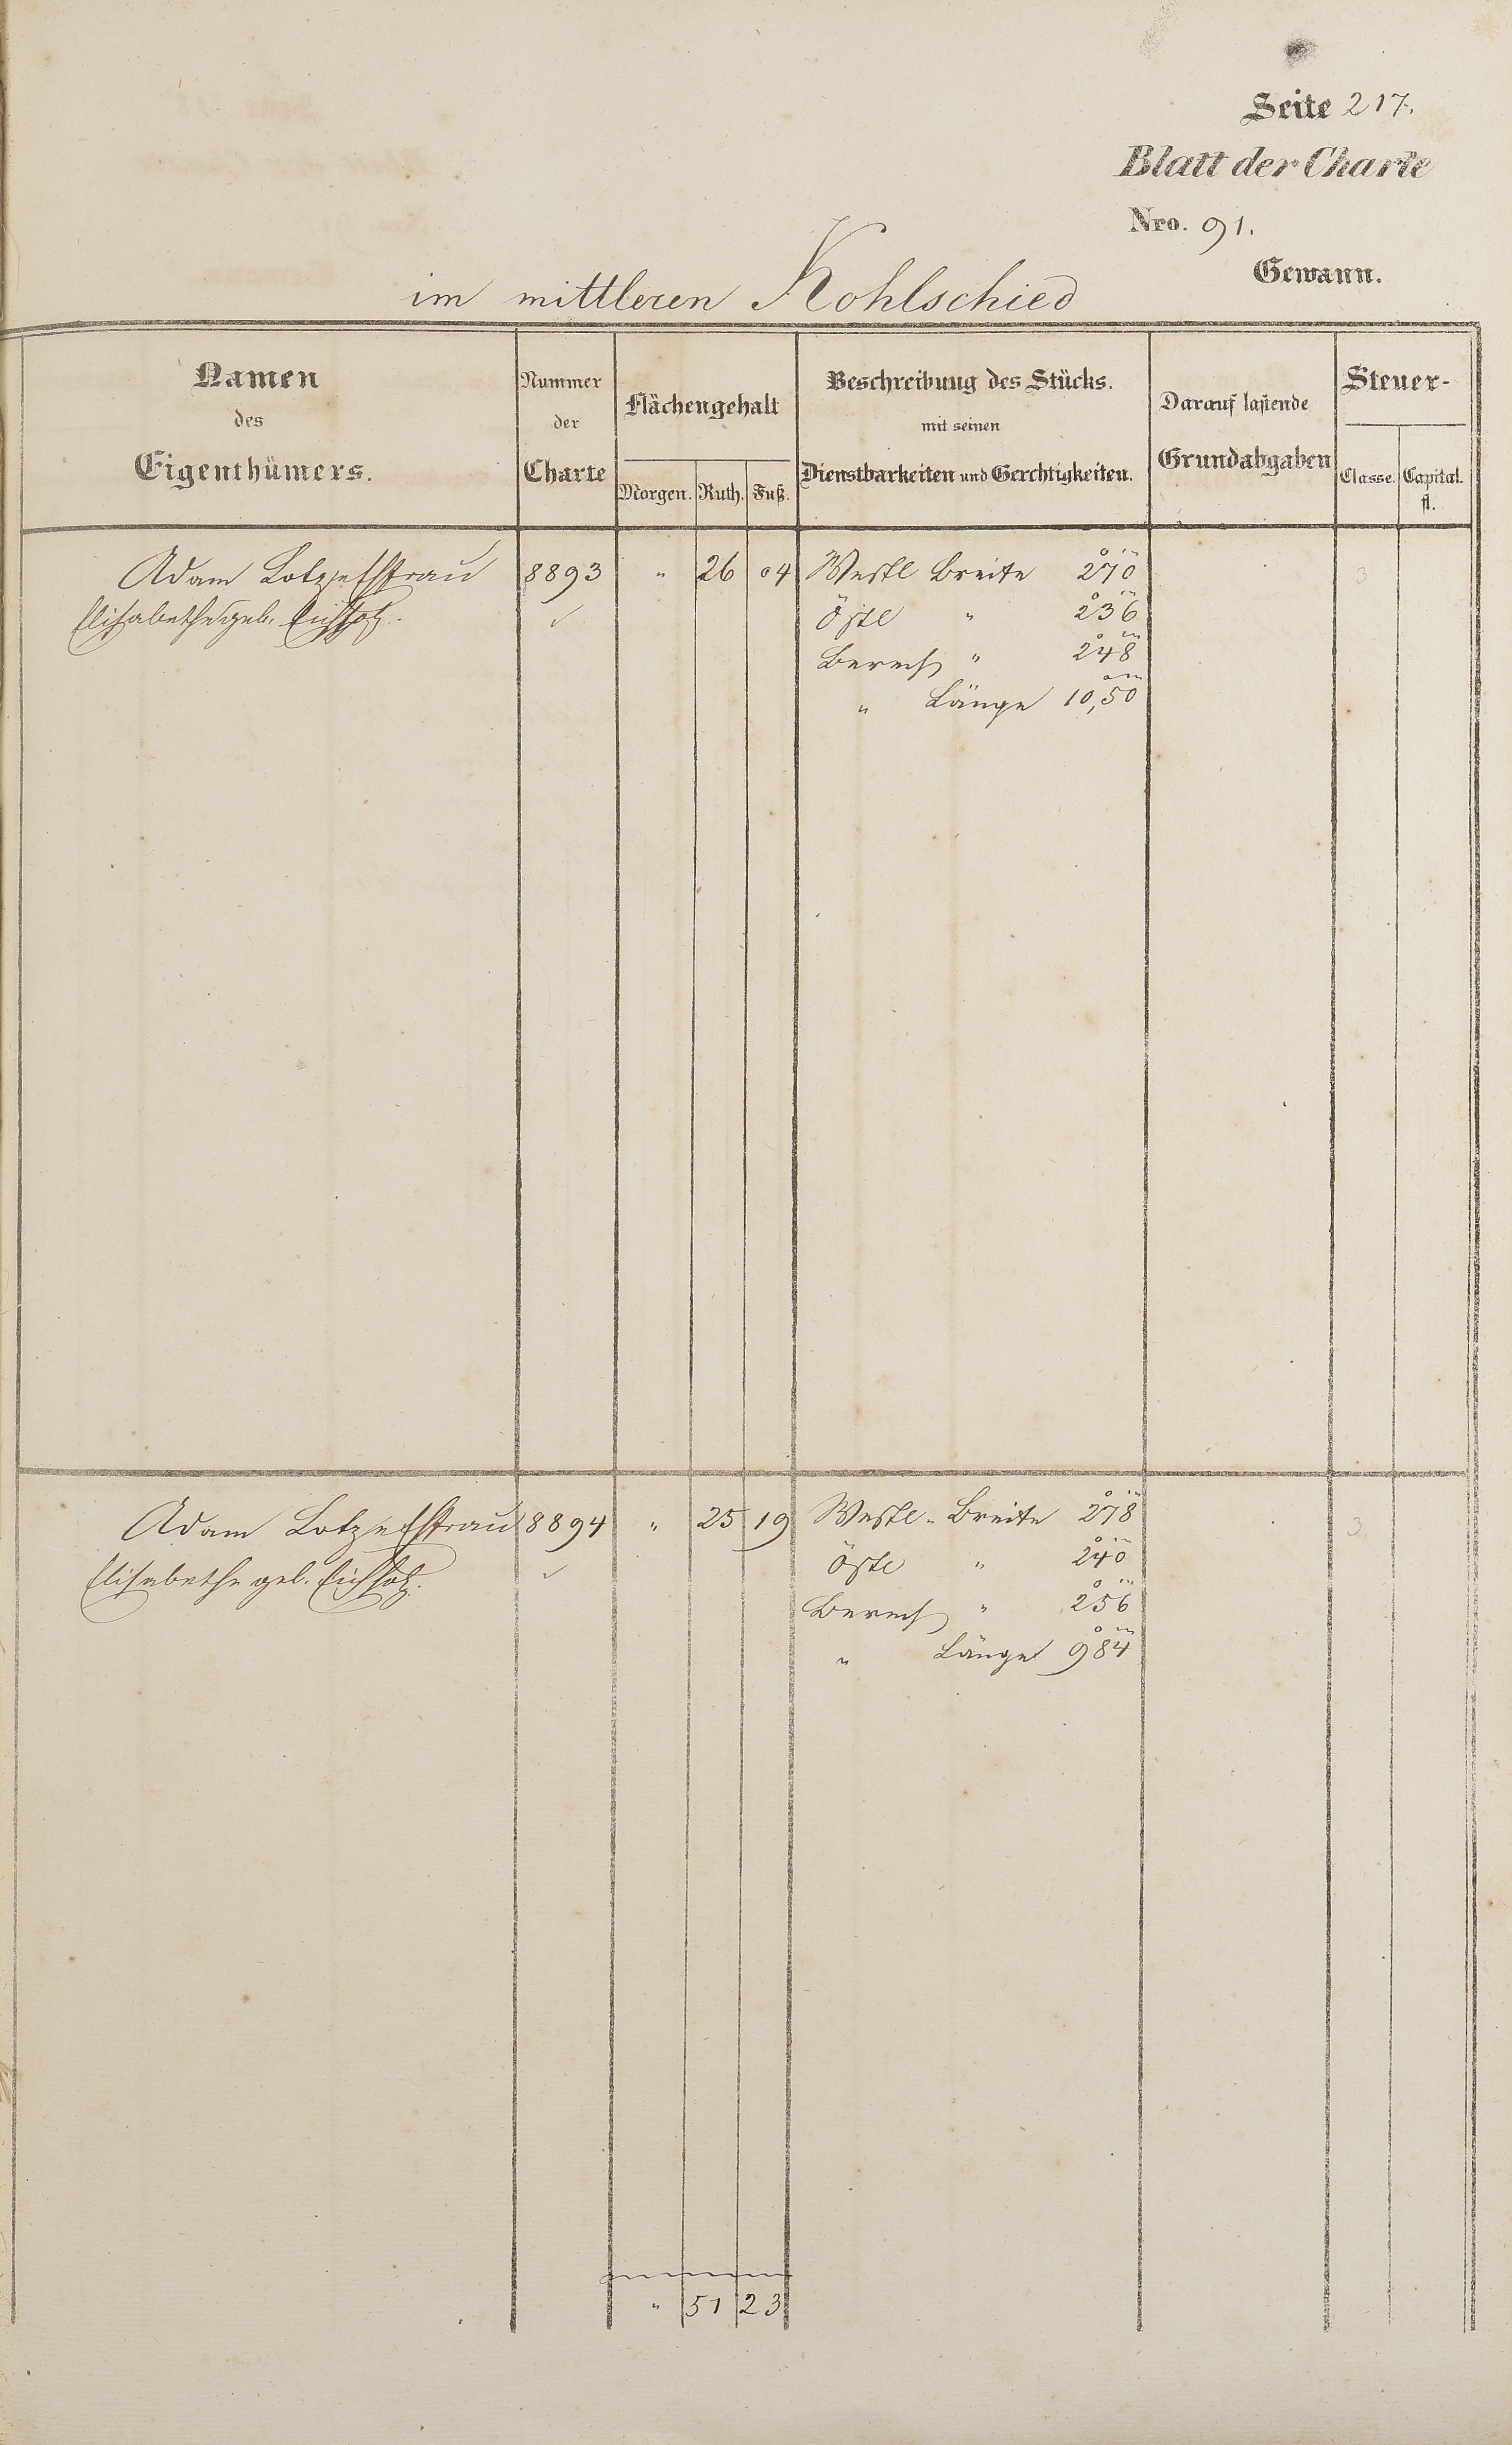 Seite 217.
Blatt der Charte
Nro. 91.
Gewann.
im mittleren Kohlschied
Namen des Eigenthümers.
Nummer der Charte
Flächengehalt
Morgen. Ruth. Fuß.
Beschreibung des Stücks.
mit seinen
Dienstbarkeiten und Gerechtigkeiten.
Darauf lastende
Grundabgaben
Steuer-
Classe. Capital.
fl.
Adam Lotz Ehefrau 8893 " 26 04 Westl Breite 270 3
Elisabethe geb. Östl " 236
Berech " 248
" Länge 10,50
Adam Lotz Ehefrau 8894 " 25 19 Westl. Breite 278 3.
Elisabethe geb. Östl " 240
Berech " 256
" Länge 984
" 51 23